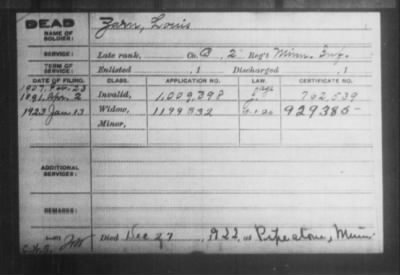 DEAD
NAME OF SOLDIER: Zorn, Louis
SERVICE: Late rank, Co. B, 2 Reg't Minn. Inf.
TERM OF SERVICE: Enlisted , 1 Discharged , 1
DATE OF FILING. CLASS. APPLICATION NO. LAW. CERTIFICATE NO.
1907, 23
1891, Apr. 2 Invalid, 1,009,398 702,539
1923 Jan 13 Widow, 1199832 929385
Minor,
ADDITIONAL SERVICES:
REMARKS:
Died Dec 27, 1922, at Pipestone, Minn.